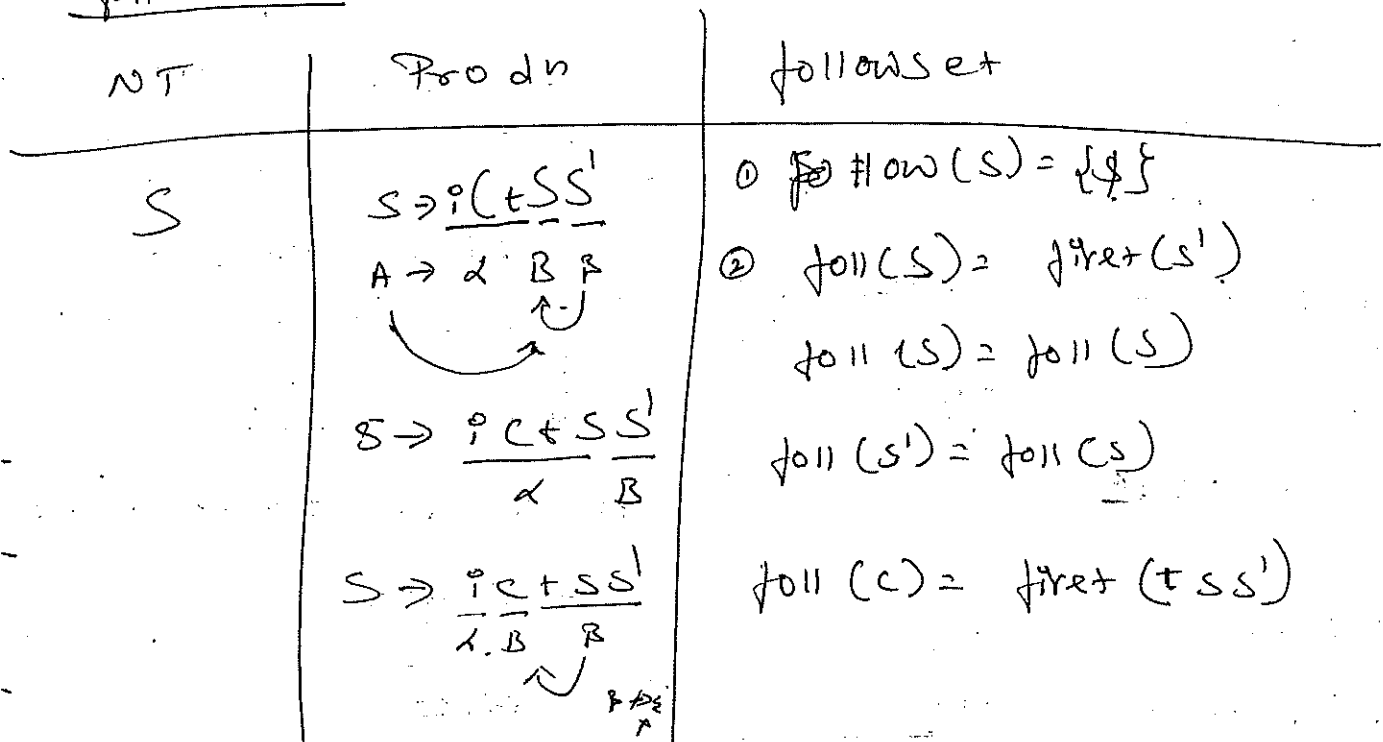 NT Prodn followset
S S → iCtSS' ① Follow(S) = {$}
A → α B β ② foll(S) = first(S')
foll(S) = foll(S)
S → iCtSS' foll(S') = foll(S)
α B
S → iCtSS' foll(C) = first(tSS')
α . B β